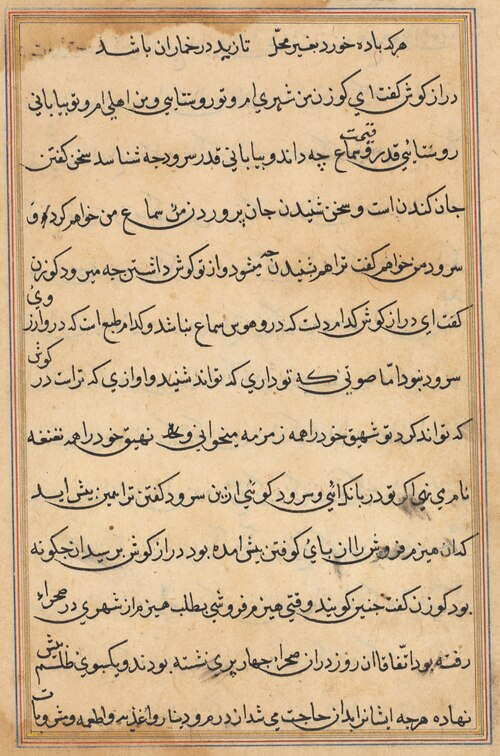 هرکه باده خورد بغیر محل تا زید در خماران باشد
دراز کوش کفت ای کوزن من شهری ام و تو روستایی و من اهلی ام و تو بیابانی
روستایی قدر و قیمت سماع چه داند و بیابانی قدر سرود چه شناسد سخن کفتن
جان کندن است و سخن شنیدن جان پروردن من سماع من خواهم کرد و
سرود من خواهم کفت ترا هم شنیدن چه میشود و از تو کوش داشتن چه میرود کوزن
کفت ای دراز کوش کدام دلست که درو هوس سماع نباشد و کدام طبع است که دروی ارز
سرود نبود اما صوتی که تو داری که تواند شنید و اوازی که تراست در کوش
که تواند کرد تو شهیق خود را همه زمزمه میخوانی و نهیق خود را همه نغنغه
نام می نهی اکر تو در بانک ائی و سرود کوئی ازین سرود کفتن ترا همین پیش اید
که ان هیزم فروش را از پای کوفتن پیش امده بود دراز کوش پرسید ان چکونه
بود کوزن کفت چنین کویند وقتی هیزم فروشی بطلب هیزم از شهری در صحراء
رفته بود اتفاقا ان روز در ان صحراء چهار پری نشسته بودند و یکسوی طلسم پیش
نهاده هرچه ایشانرا بدان حاجت می شد از درم و دینار و اغذیه و اطعمه و مشروبات